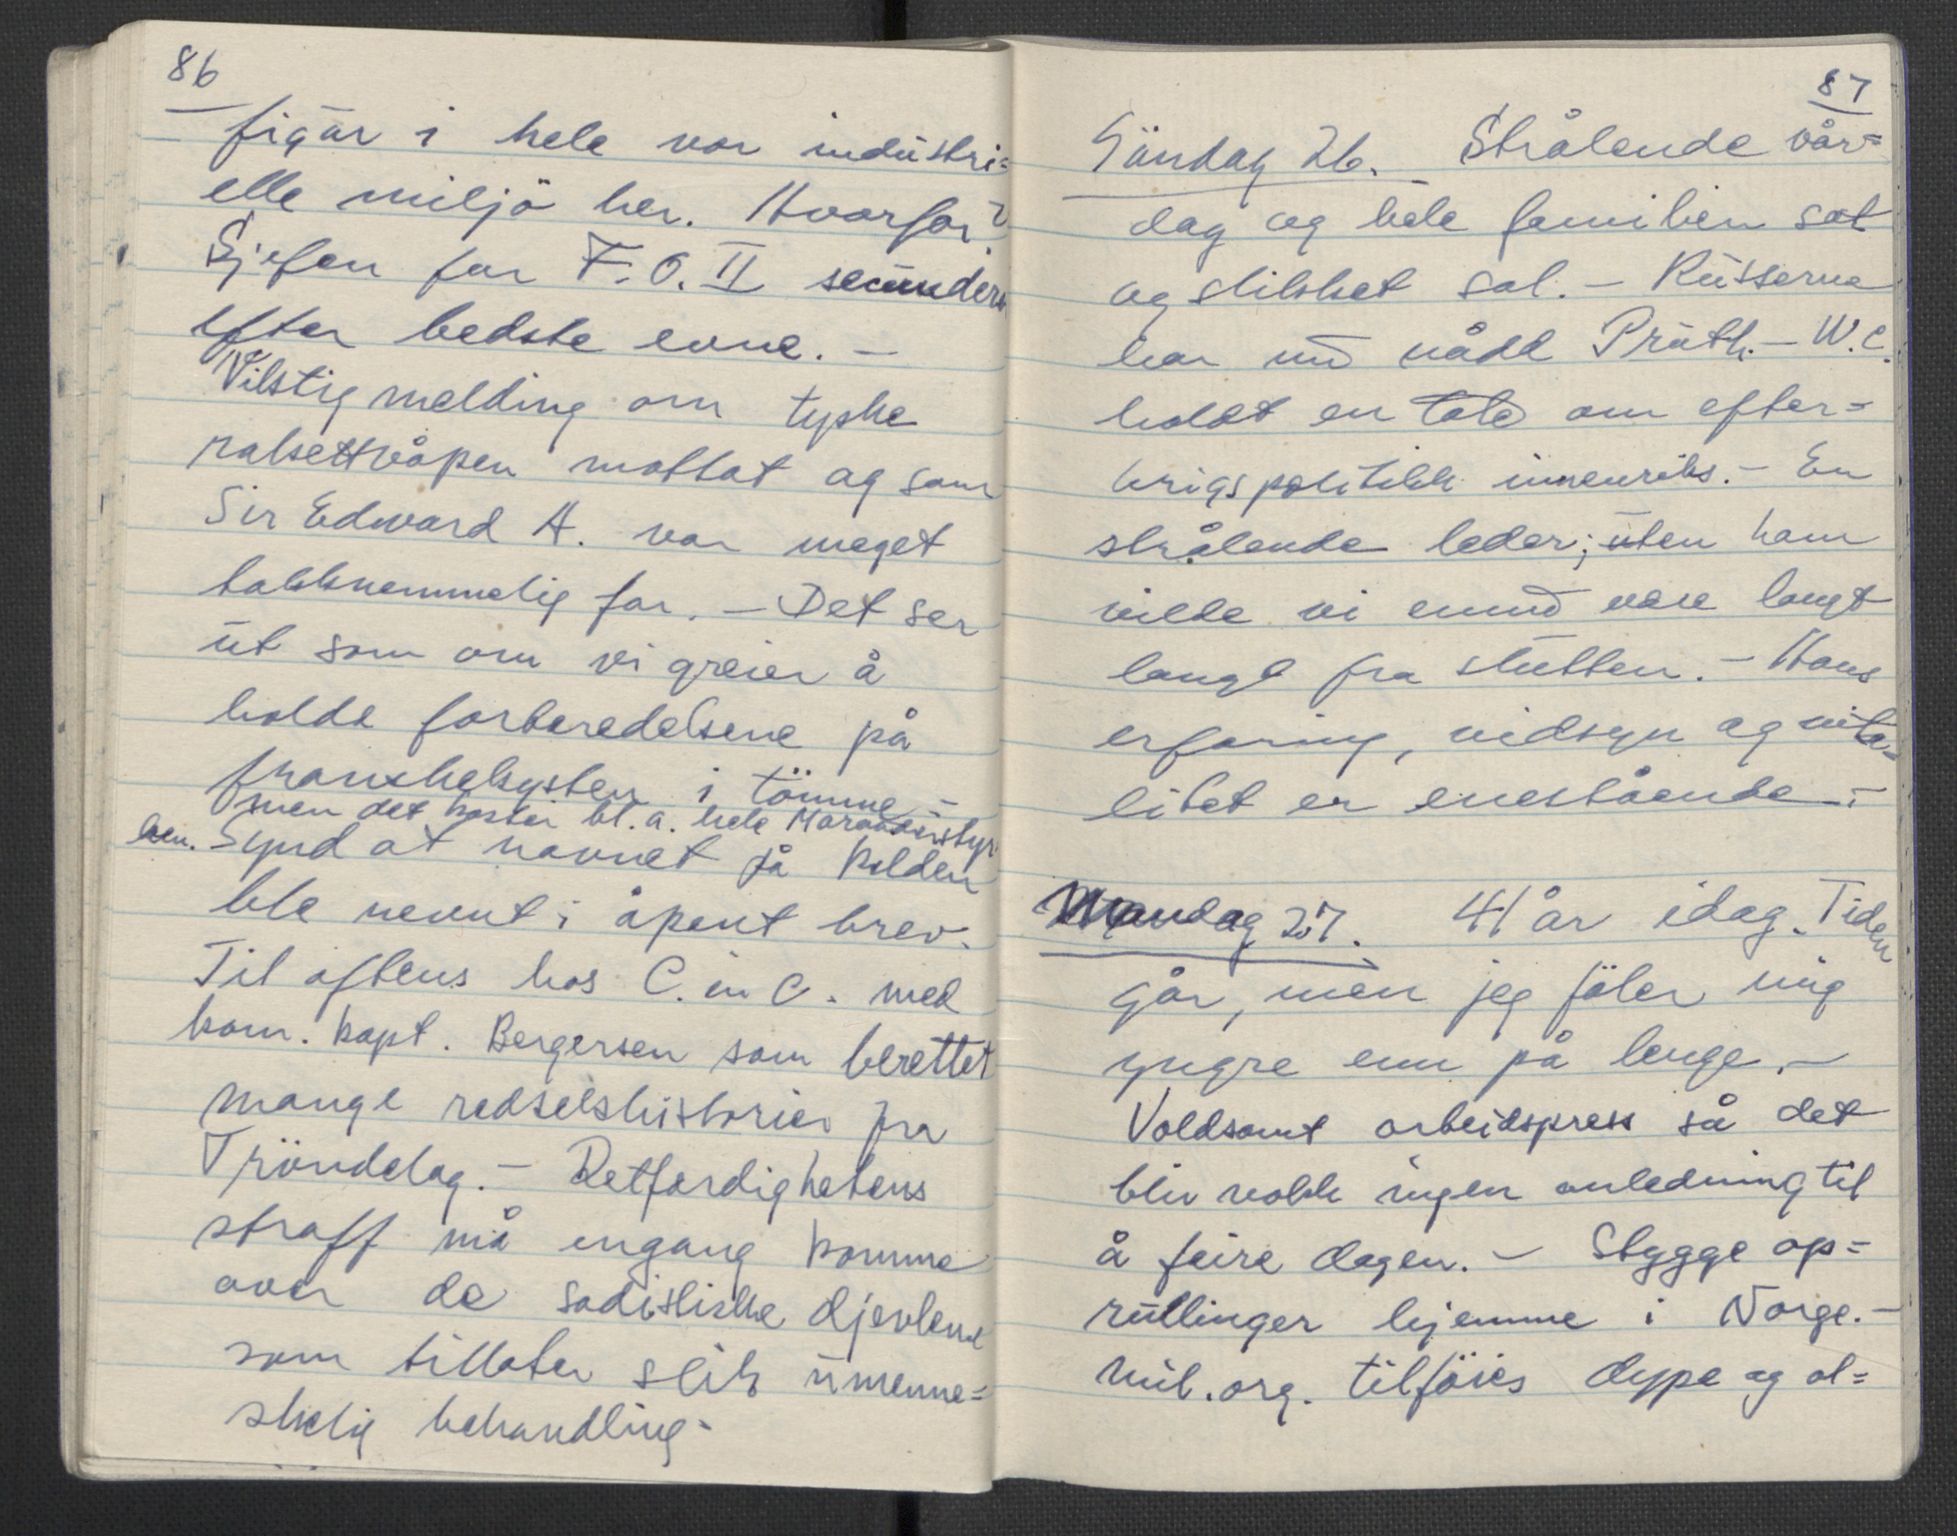 86
figur i hele vor industri=
elle miljö her. Hvorfor?
Sjefen for F.O. II sekunderer
efter bedste evne. –
Viktig melding om tyske
rakettvåpen mottat og som
Sir Edward A. var meget
takknemmelig for. – Det ser
ut som om vi greier å
holde forberedelsene på
franskekysten i tömme –
men det koster bl.a. hele Maraudersstyr-
ken. Synd at navnet på kilden
ble nevnt i åpent brev.
Til aftens hos C. in C. med
kom. kapt. Bergersen som berettet
mange redselshistorier fra
Tröndelag. – Retferdighetens
straff må engang komme
over de sadistiske djevlene
som tillater slik umenne=
skelig behandling –
87
Söndag 26. Strålende vår=
dag og hele familien sat
og slikket sol. – Russerne
har nu nådd Pruth. – W.C.
holdt en tale om efter=
krigspolitikk innenriks. – En
strålende leder; uten ham
vilde vi ennu være langt
langt fra slutten. – Hans
erfaring, vidsyn og vita-
litet er enestående –
Mandag 27. 41 år idag. Tiden
går, men jeg föler mig
yngre enn på lenge. –
Voldsomt arbeidspress så det
blir nokk ingen anledning til
å feire dagen. – Stygge op=
rullinger hjemme i Norge. –
Mil.org. tilföies dype og al=